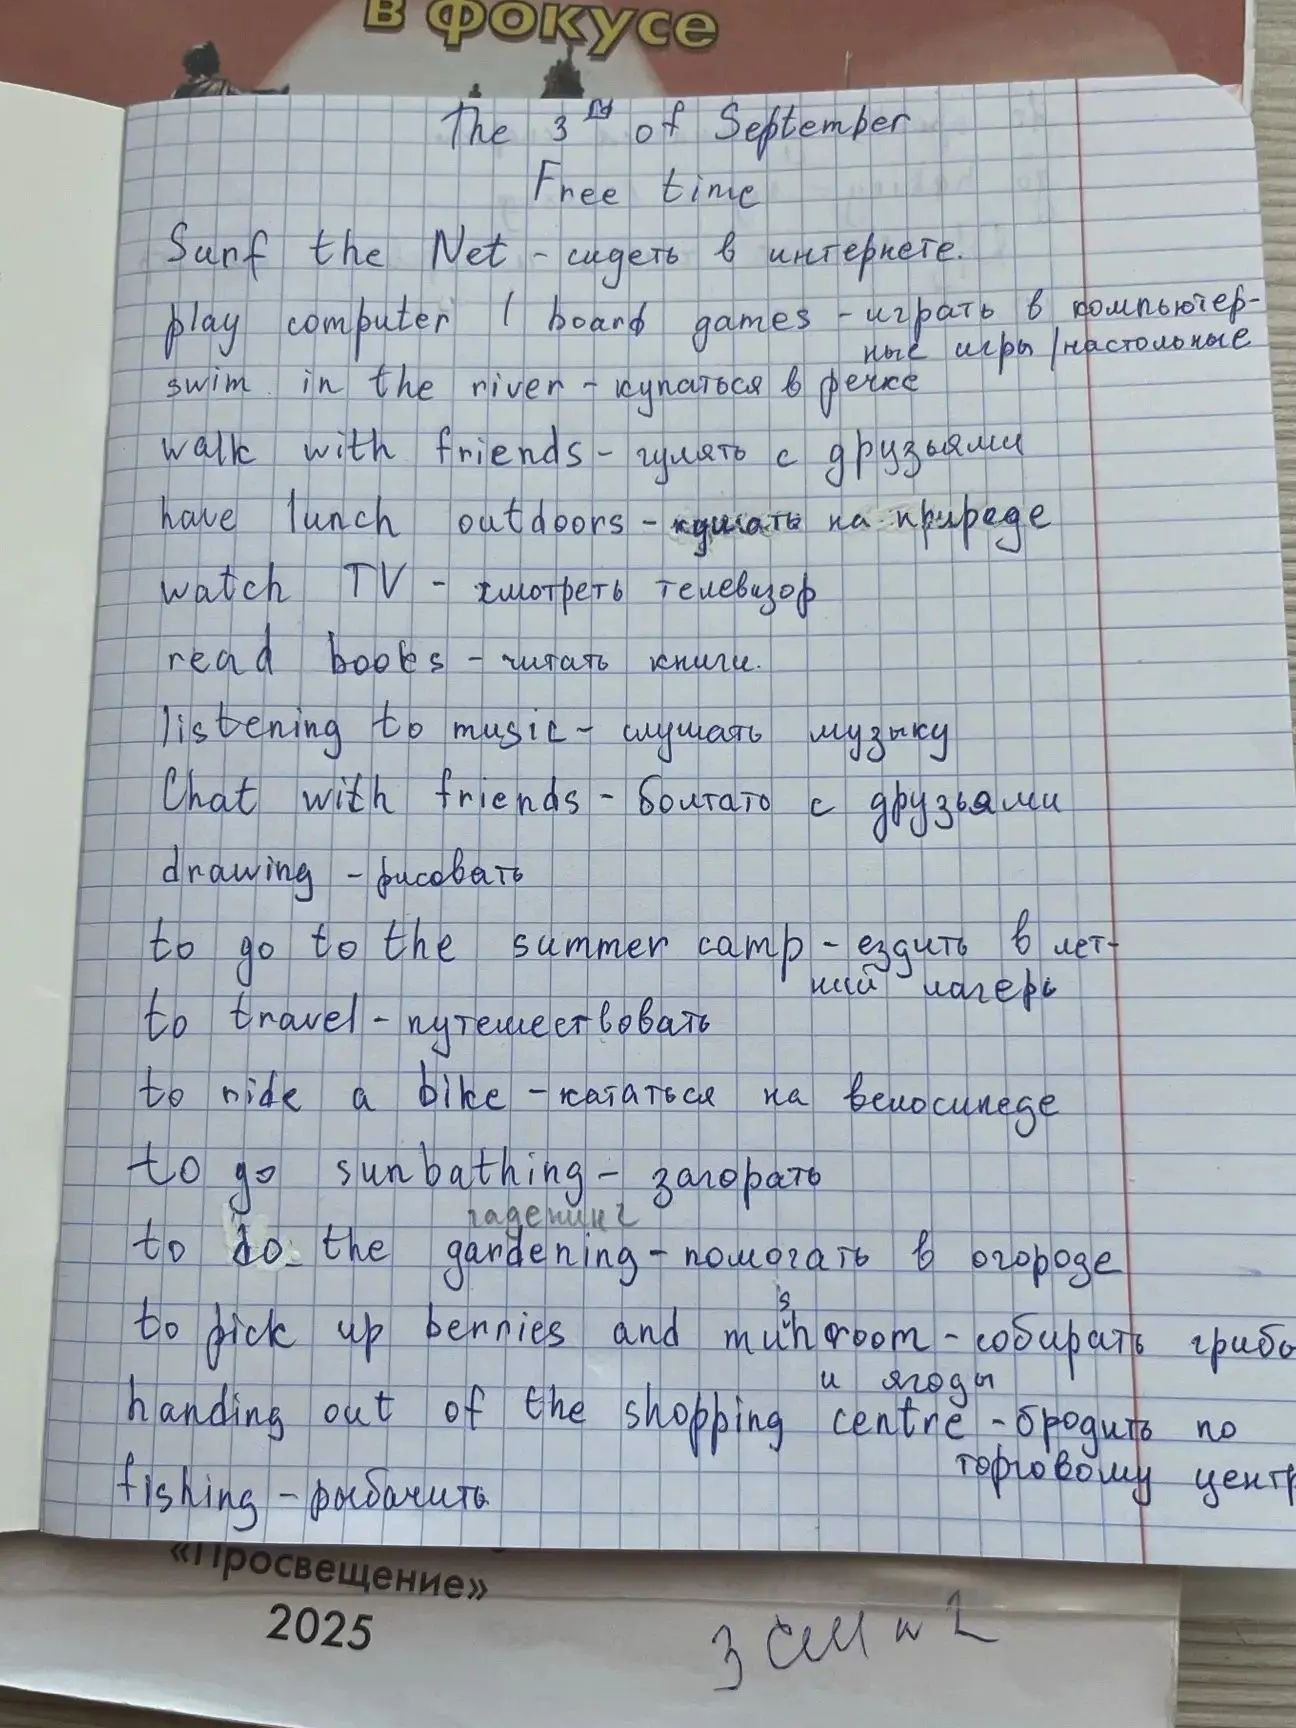 в фокусе
The 3rd of September
Free time
Surf the Net - сидеть в интернете.
play computer / board games - играть в компьютер-
ные игры / настольные
swim in the river - купаться в речке
walk with friends - гулять с друзьями
have lunch outdoors - кушать на природе
watch TV - смотреть телевизор
read books - читать книги.
listening to music - слушать музыку
Chat with friends - болтать с друзьями
drawing - рисовать
to go to the summer camp - ездить в лет-
ний лагерь
to travel - путешествовать
to ride a bike - кататься на велосипеде
to go sunbathing - загорать
гаденинг
to do the gardening - помогать в огороде
to pick up berries and mushroom - собирать грибы
и ягоды
handing out of the shopping centre - бродить по
торговому центр
fishing - рыбачить
«Просвещение»
2025